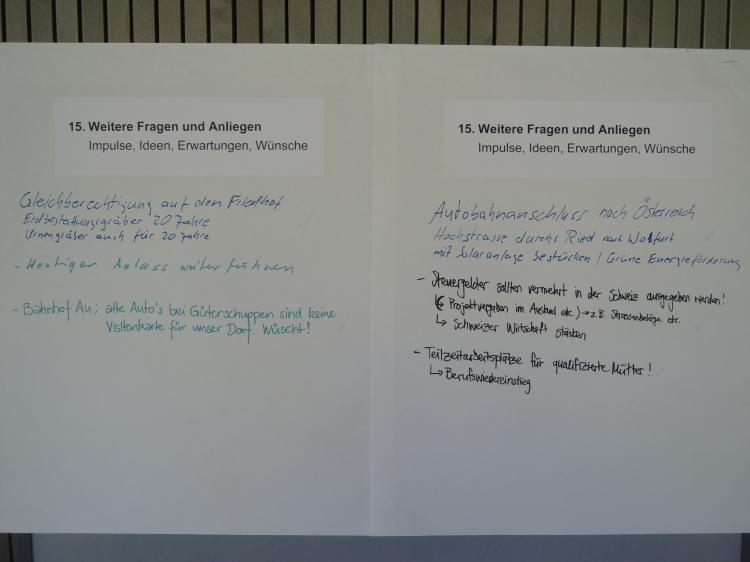 15. Weitere Fragen und Anliegen
Impulse, Ideen, Erwartungen, Wünsche
Gleichberechtigung auf dem Friedhof
Erdbestattungsgräber 20 Jahre
Urnengräber auch für 20 Jahre
- Heutiger Anlass weiter führen
- Bahnhof Au; alte Auto's bei Güterschuppen sind keine
Visitenkarte für unser Dorf. Wüscht!
15. Weitere Fragen und Anliegen
Impulse, Ideen, Erwartungen, Wünsche
Autobahnanschluss nach Österreich
Hochstrasse durchs Ried nach Wolfurt
mit Solaranlage bestücken / Grüne Energieförderung
- Steuergelder sollten vermehrt in der Schweiz ausgegeben werden!
Projektvergaben im Ausland etc.) → z.B. Strassenbeläge etc.
↳ Schweizer Wirtschaft stärken
- Teilzeitarbeitsplätze für qualifizierte Mütter!
↳ Berufswiedereinstieg